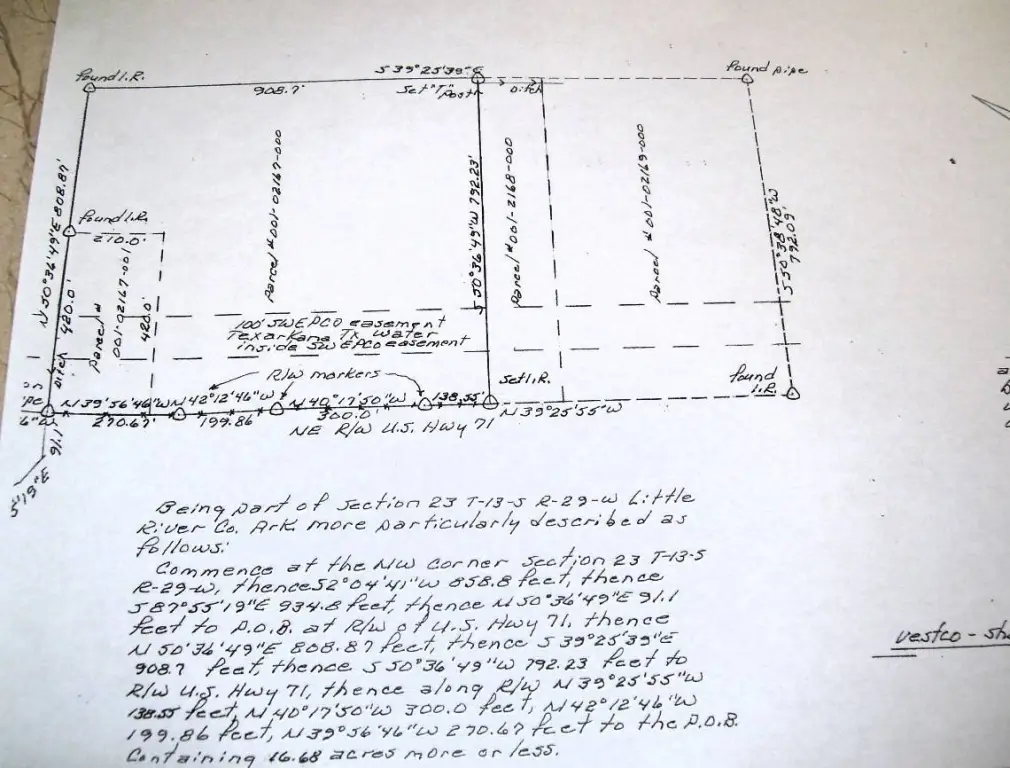 found I.R.
S 39°25'39"E
found pipe
908.7'
Set "T" Post
Ditch
N 50°36'49"E 808.87'
found I.R.
210.0'
420.0'
Parcel #
001-02167-001
420.0'
Ditch
Parcel #001-02167-000
S 50°36'49"W 792.23'
Parcel #001-2168-000
Parcel #001-02169-000
S 50°38'48"W
792.09'
100' SWEPCO easement
Texarkana Tx. Water
inside SWEPCO easement
R/W markers
Set I.R.
found
I.R.
N 39°56'46"W
N 42°12'46"W
N 40°17'50"W
138.55'
N 39°25'55"W
270.67'
199.86'
300.0'
NE R/W U.S. Hwy 71
91.1'
5'19"E
Being part of Section 23 T-13-S R-29-W Little
River Co. Ark. more particularly described as
follows:
Commence at the NW corner Section 23 T-13-S
R-29-W, thence S2°04'41"W 858.8 feet, thence
S87°55'19"E 934.8 feet, thence N 50°36'49"E 91.1
feet to P.O.B. at R/W of U.S. Hwy 71, thence
N 50°36'49"E 808.87 feet, thence S 39°25'39"E
908.7 feet, thence S 50°36'49"W 792.23 feet to
R/W U.S. Hwy 71, thence along R/W N 39°25'55"W
138.55 feet, N 40°17'50"W 300.0 feet, N 42°12'46"W
199.86 feet, N 39°56'46"W 270.67 feet to the P.O.B.
Containing 16.68 acres more or less.
vestco - sh